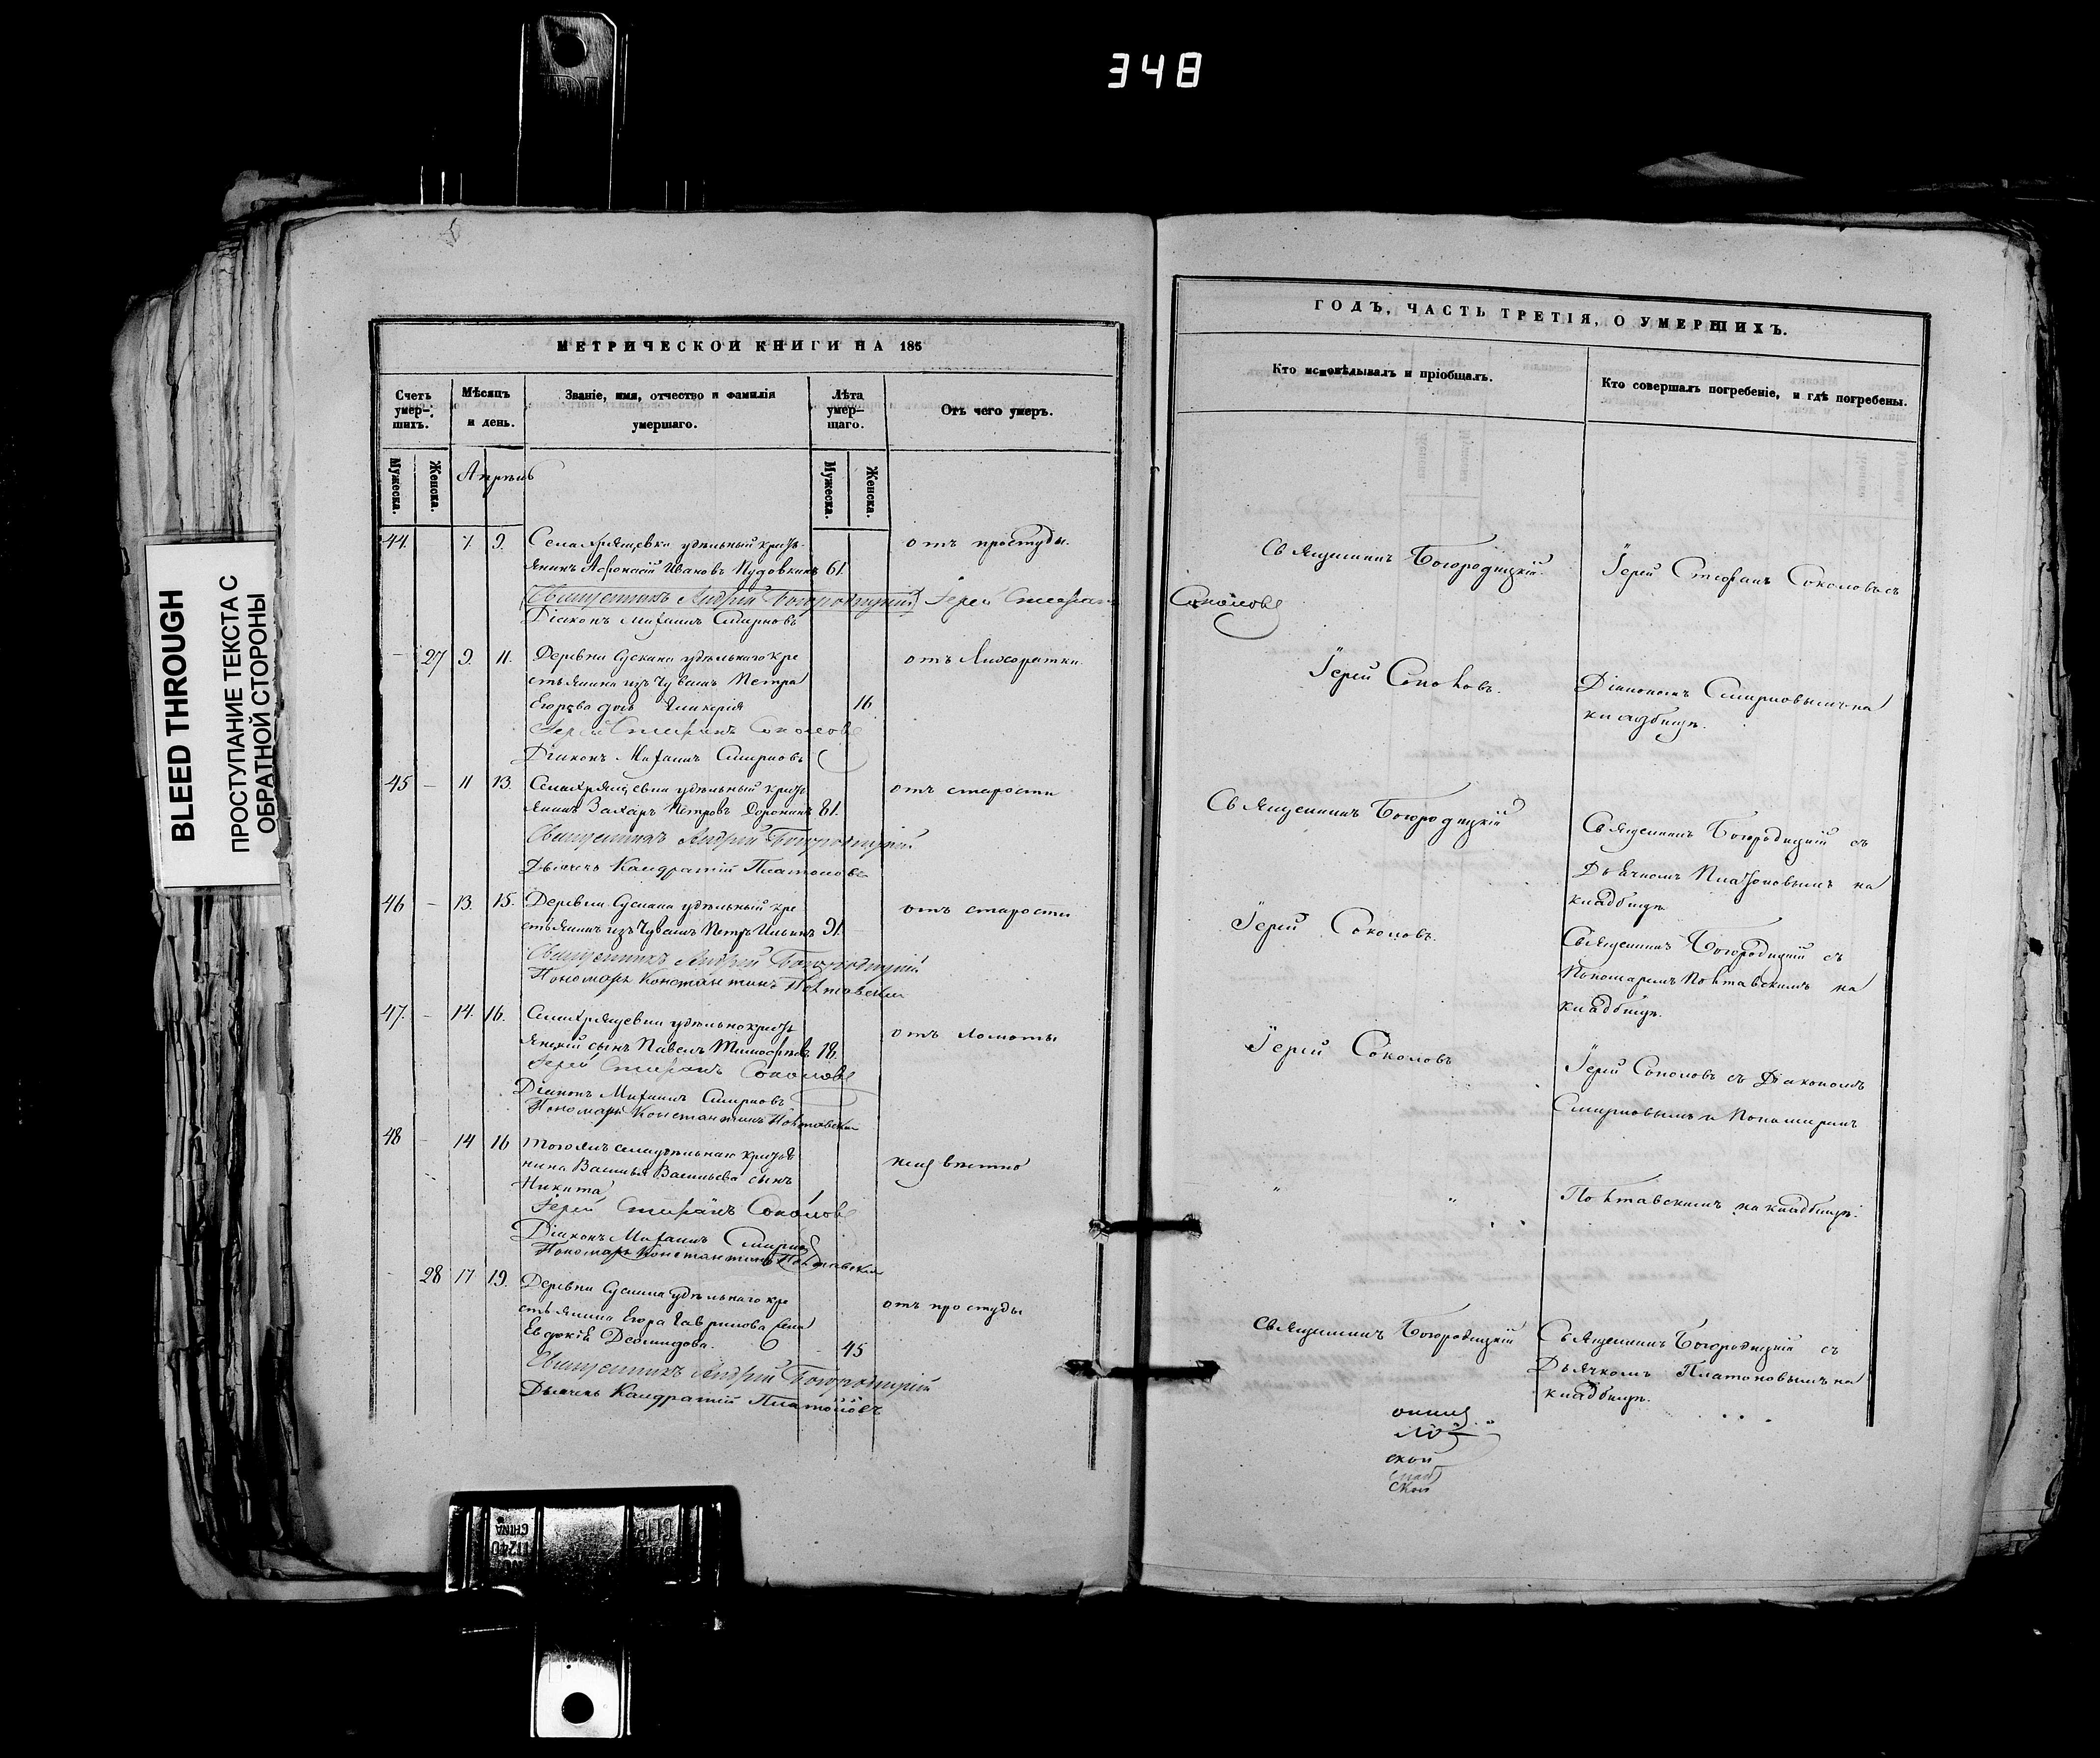 348
BLEED THROUGH
ПРОСТУПАНИЕ ТЕКСТА С
ОБРАТНОЙ СТОРОНЫ
МЕТРИЧЕСКОЙ КНИГИ НА 185
Счетъ умер-шихъ.
Мѣсяцъ и день.
Званіе, имя, отчество и фамилія умершаго.
Лѣта умер-щаго.
Отъ чего умеръ.
Мужеска.
Женска.
Апрѣль
Мужеска.
Женска.
44. 7. 9. Села Хрящевки удѣльный кресть-
янинъ Афонасій Ивановъ Пудовкинъ 61. отъ простуды.
Священникъ Андрей Богородицкій Іерей Стефанъ
Діаконъ Михаилъ Смирновъ
— 27 9. 11. Деревни Сускана удѣльнаго кре
стьянина изъ Чувашъ Петра
Егорова дочь Гликерія 16 отъ лихорадки
Іерей Стефанъ Соколовъ
Діаконъ Михаилъ Смирновъ
45 — 11 13. Села Хрящевки удѣльный кресть
янинъ Захаръ Петровъ Доронинъ 81. отъ старости
Священникъ Андрей Богородицкій
Дьячекъ Кандратій Платоновъ
46 — 13. 15. Деревни Сускана удѣльный кре
стьянинъ изъ Чувашъ Петръ Ильинъ 91. отъ старости
Священникъ Андрей Богородицкій
Пономарь Константинъ Полтавскій
47. — 14. 16. Села Хрящевки удѣльнокресть
янскій сынъ Павелъ 18. отъ ломоты
Іерей Стефанъ Соколовъ
Діаконъ Михаилъ Смирновъ
Пономарь Константинъ Полтавскій
48 — 14 16 Тогожъ села удѣльнаго крестья
нина Василья Васильева сынъ
Никита неизвѣстно
Іерей Стефанъ Соколовъ
Діаконъ Михаилъ Смирновъ
Пономарь Константинъ Полтавскій
— 28 17 19. Деревни Сускана удѣльнаго кре
стьянина Егора Гаврилова жена
Евдокія Деомидова. 45 отъ простуды
Священникъ Андрей Богородицкій
Дьячекъ Кандратій Платоновъ
ГОДЪ, ЧАСТЬ ТРЕТІЯ, О УМЕРШИХЪ.
Кто исповѣдывалъ и пріобщалъ.
Кто совершалъ погребеніе, и гдѣ погребены.
Священникъ Богородицкій.
Іерей Стефанъ Соколовъ съ
Соколовъ
Іерей Соколовъ.
Діакономъ Смирновымъ на
кладбищѣ.
Священникъ Богородицкій
Священникъ Богородицкій съ
Дьячкомъ Платоновымъ на
кладбищѣ
Іерей Соколовъ.
Священникъ Богородицкій съ
Пономаремъ Полтавскимъ на
кладбищѣ.
Іерей Соколовъ
Іерей Соколовъ съ Діакономъ
Смирновымъ и Пономаремъ
" "
Полтавскимъ на кладбищѣ.
Священникъ Богородицкій
Священникъ Богородицкій съ
Дьячкомъ Платоновымъ на
кладбищѣ.
ской
ской